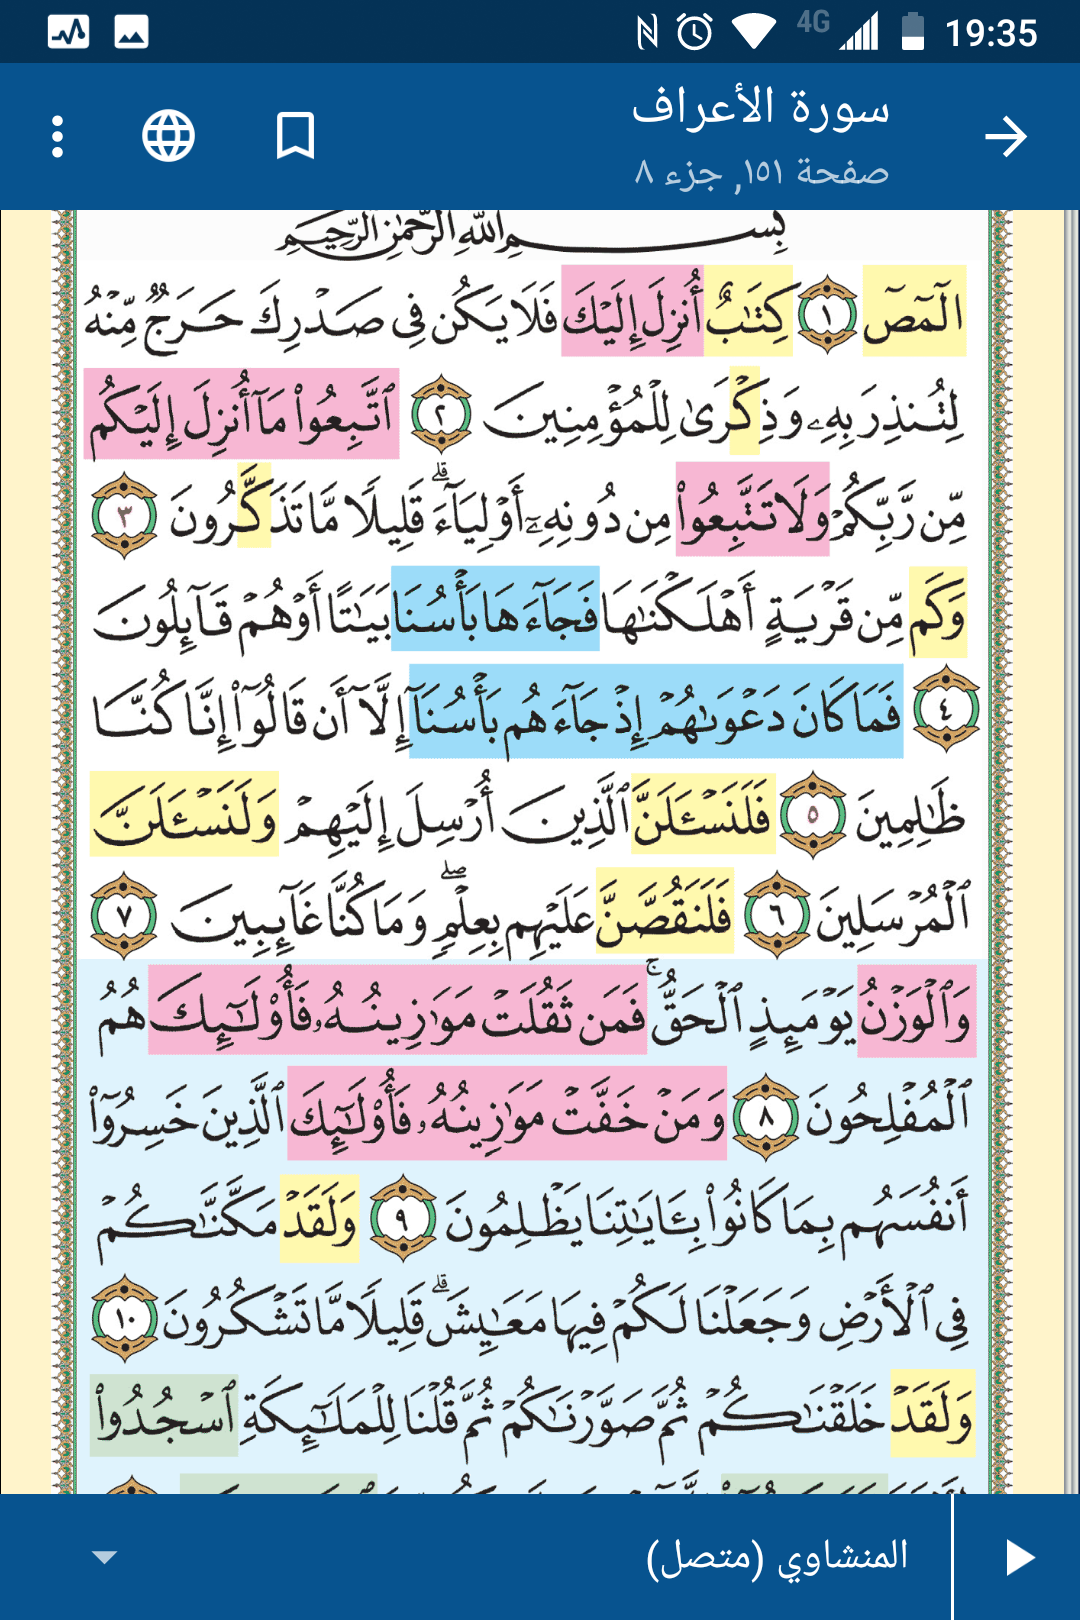 4G 19:35
سورة الأعراف
صفحة ١٥١, جزء ٨
بِسْمِ اللَّهِ الرَّحْمَٰنِ الرَّحِيمِ
الٓمٓصٓ ١ كِتَٰبٌ أُنزِلَ إِلَيْكَ فَلَا يَكُن فِى صَدْرِكَ حَرَجٌ مِّنْهُ
لِتُنذِرَ بِهِۦ وَذِكْرَىٰ لِلْمُؤْمِنِينَ ٢ ٱتَّبِعُوا۟ مَآ أُنزِلَ إِلَيْكُم
مِّن رَّبِّكُمْ وَلَا تَتَّبِعُوا۟ مِن دُونِهِۦٓ أَوْلِيَآءَ ۗ قَلِيلًا مَّا تَذَكَّرُونَ ٣
وَكَم مِّن قَرْيَةٍ أَهْلَكْنَٰهَا فَجَآءَهَا بَأْسُنَا بَيَٰتًا أَوْ هُمْ قَآئِلُونَ
٤ فَمَا كَانَ دَعْوَىٰهُمْ إِذْ جَآءَهُم بَأْسُنَآ إِلَّآ أَن قَالُوٓا۟ إِنَّا كُنَّا
ظَٰلِمِينَ ٥ فَلَنَسْـَٔلَنَّ ٱلَّذِينَ أُرْسِلَ إِلَيْهِمْ وَلَنَسْـَٔلَنَّ
ٱلْمُرْسَلِينَ ٦ فَلَنَقُصَّنَّ عَلَيْهِم بِعِلْمٍ ۖ وَمَا كُنَّا غَآئِبِينَ ٧
وَٱلْوَزْنُ يَوْمَئِذٍ ٱلْحَقُّ ۚ فَمَن ثَقُلَتْ مَوَٰزِينُهُۥ فَأُو۟لَٰٓئِكَ هُمُ
ٱلْمُفْلِحُونَ ٨ وَمَنْ خَفَّتْ مَوَٰزِينُهُۥ فَأُو۟لَٰٓئِكَ ٱلَّذِينَ خَسِرُوٓا۟
أَنفُسَهُم بِمَا كَانُوا۟ بِـَٔايَٰتِنَا يَظْلِمُونَ ٩ وَلَقَدْ مَكَّنَّٰكُمْ
فِى ٱلْأَرْضِ وَجَعَلْنَا لَكُمْ فِيهَا مَعَٰيِشَ ۗ قَلِيلًا مَّا تَشْكُرُونَ ١٠
وَلَقَدْ خَلَقْنَٰكُمْ ثُمَّ صَوَّرْنَٰكُمْ ثُمَّ قُلْنَا لِلْمَلَٰٓئِكَةِ ٱسْجُدُوا۟
المنشاوي (متصل)